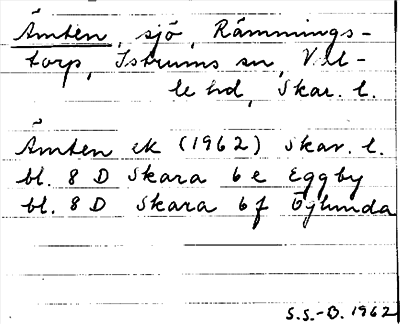 Ämten, sjö, Rämnings-
torp, Istrums sn, Val-
le hd, Skar. l.
Ämten ek (1962) Skar. l.
bl. 8 D Skara 6 e Eggby
bl. 8 D Skara 6 f Öglunda
S.S.-B. 1962